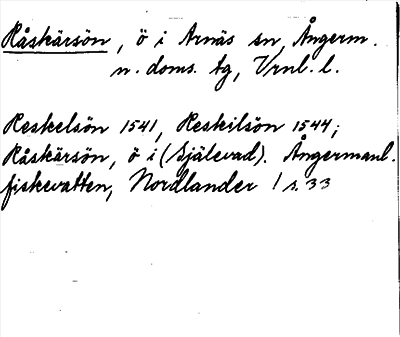 Råskärsön, ö i Arnäs sn, Ångerm.
n. doms. tg, Vrnl. l.
Reskelsön 1541, Reskilsön 1544;
Råskärsön, ö i (Själevad). Ångermanl.
fiskevatten, Nordlander / s. 33